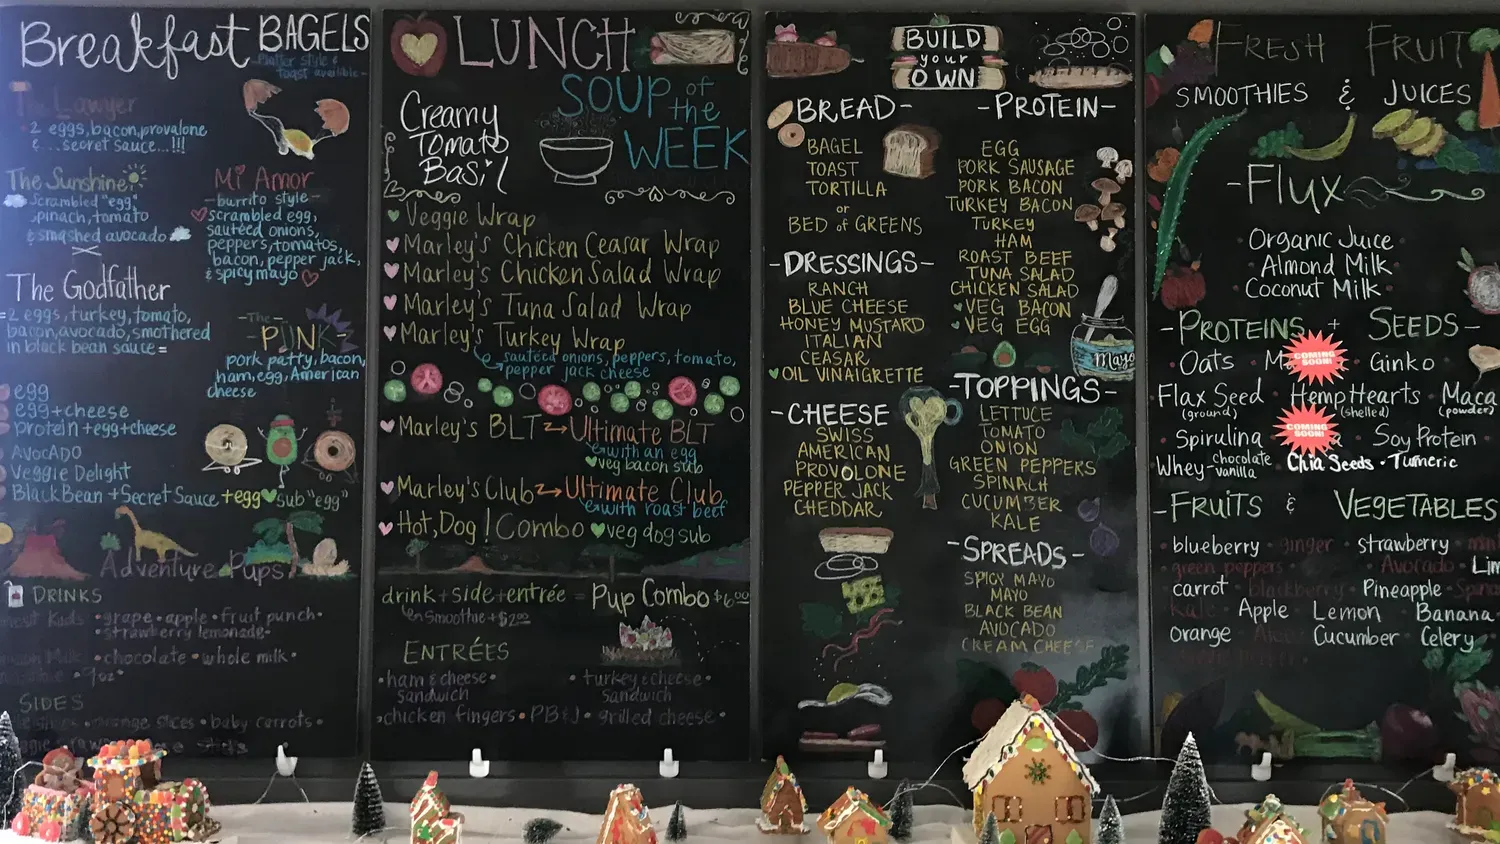 Breakfast BAGELS
Platter style &
toast available
The Lawyer
2 eggs, bacon, provalone
& ...secret sauce...!!!
The Sunshine
scrambled "egg",
spinach, tomato
& smashed avocado
Mi Amor
- burrito style -
scrambled egg,
sautéed onions,
peppers, tomatos,
bacon, pepper jack,
& spicy mayo
The Godfather
2 eggs, turkey, tomato,
bacon, avocado, smothered
in black bean sauce
- The -
PUNK
pork patty, bacon,
ham, egg, American
cheese
egg
egg + cheese
protein + egg + cheese
AVOCADO
Veggie Delight
Black Bean + Secret Sauce + egg sub "egg"
Adventure Pups
DRINKS
Kids • grape • apple • fruit punch •
• strawberry lemonade •
Milk • chocolate • whole milk •
SIDES
• orange slices • baby carrots •
LUNCH
SOUP of the WEEK
Creamy
Tomato
Basil
Veggie Wrap
Marley's Chicken Ceasar Wrap
Marley's Chicken Salad Wrap
Marley's Tuna Salad Wrap
Marley's Turkey Wrap
sautéed onions, peppers, tomato,
pepper jack cheese
Marley's BLT Ultimate BLT
with an egg
veg bacon sub
Marley's Club Ultimate Club
with roast beef
Hot, Dog! Combo veg dog sub
drink + side + entrée = Pup Combo $6.00
Smoothie + $2.00
ENTRÉES
• ham & cheese •
sandwich
• turkey & cheese •
sandwich
• chicken fingers • PB&J • grilled cheese •
BUILD
your
OWN
BREAD -
BAGEL
TOAST
TORTILLA
or
BED of GREENS
- DRESSINGS -
RANCH
BLUE CHEESE
HONEY MUSTARD
ITALIAN
CEASAR
OIL VINAIGRETTE
- CHEESE
SWISS
AMERICAN
PROVOLONE
PEPPER JACK
CHEDDAR
- PROTEIN -
EGG
PORK SAUSAGE
PORK BACON
TURKEY BACON
TURKEY
HAM
ROAST BEEF
TUNA SALAD
CHICKEN SALAD
VEG BACON
VEG EGG
Mayo
- TOPPINGS -
LETTUCE
TOMATO
ONION
GREEN PEPPERS
SPINACH
CUCUMBER
KALE
- SPREADS -
SPICY MAYO
MAYO
BLACK BEAN
AVOCADO
CREAM CHEESE
FRESH FRUIT
SMOOTHIES & JUICES
- Flux
Organic Juice
Almond Milk
Coconut Milk
- PROTEINS + SEEDS -
Oats COMING SOON! Ginko
Flax Seed Hemp Hearts Maca
(ground) (shelled) (powder)
COMING SOON!
Spirulina Soy Protein
Whey - chocolate vanilla Chia Seeds • Turmeric
- FRUITS & VEGETABLES
blueberry • ginger • strawberry
green peppers • Avocado •
carrot blackberry • Pineapple
Kale • Apple Lemon Banana
orange Cucumber Celery